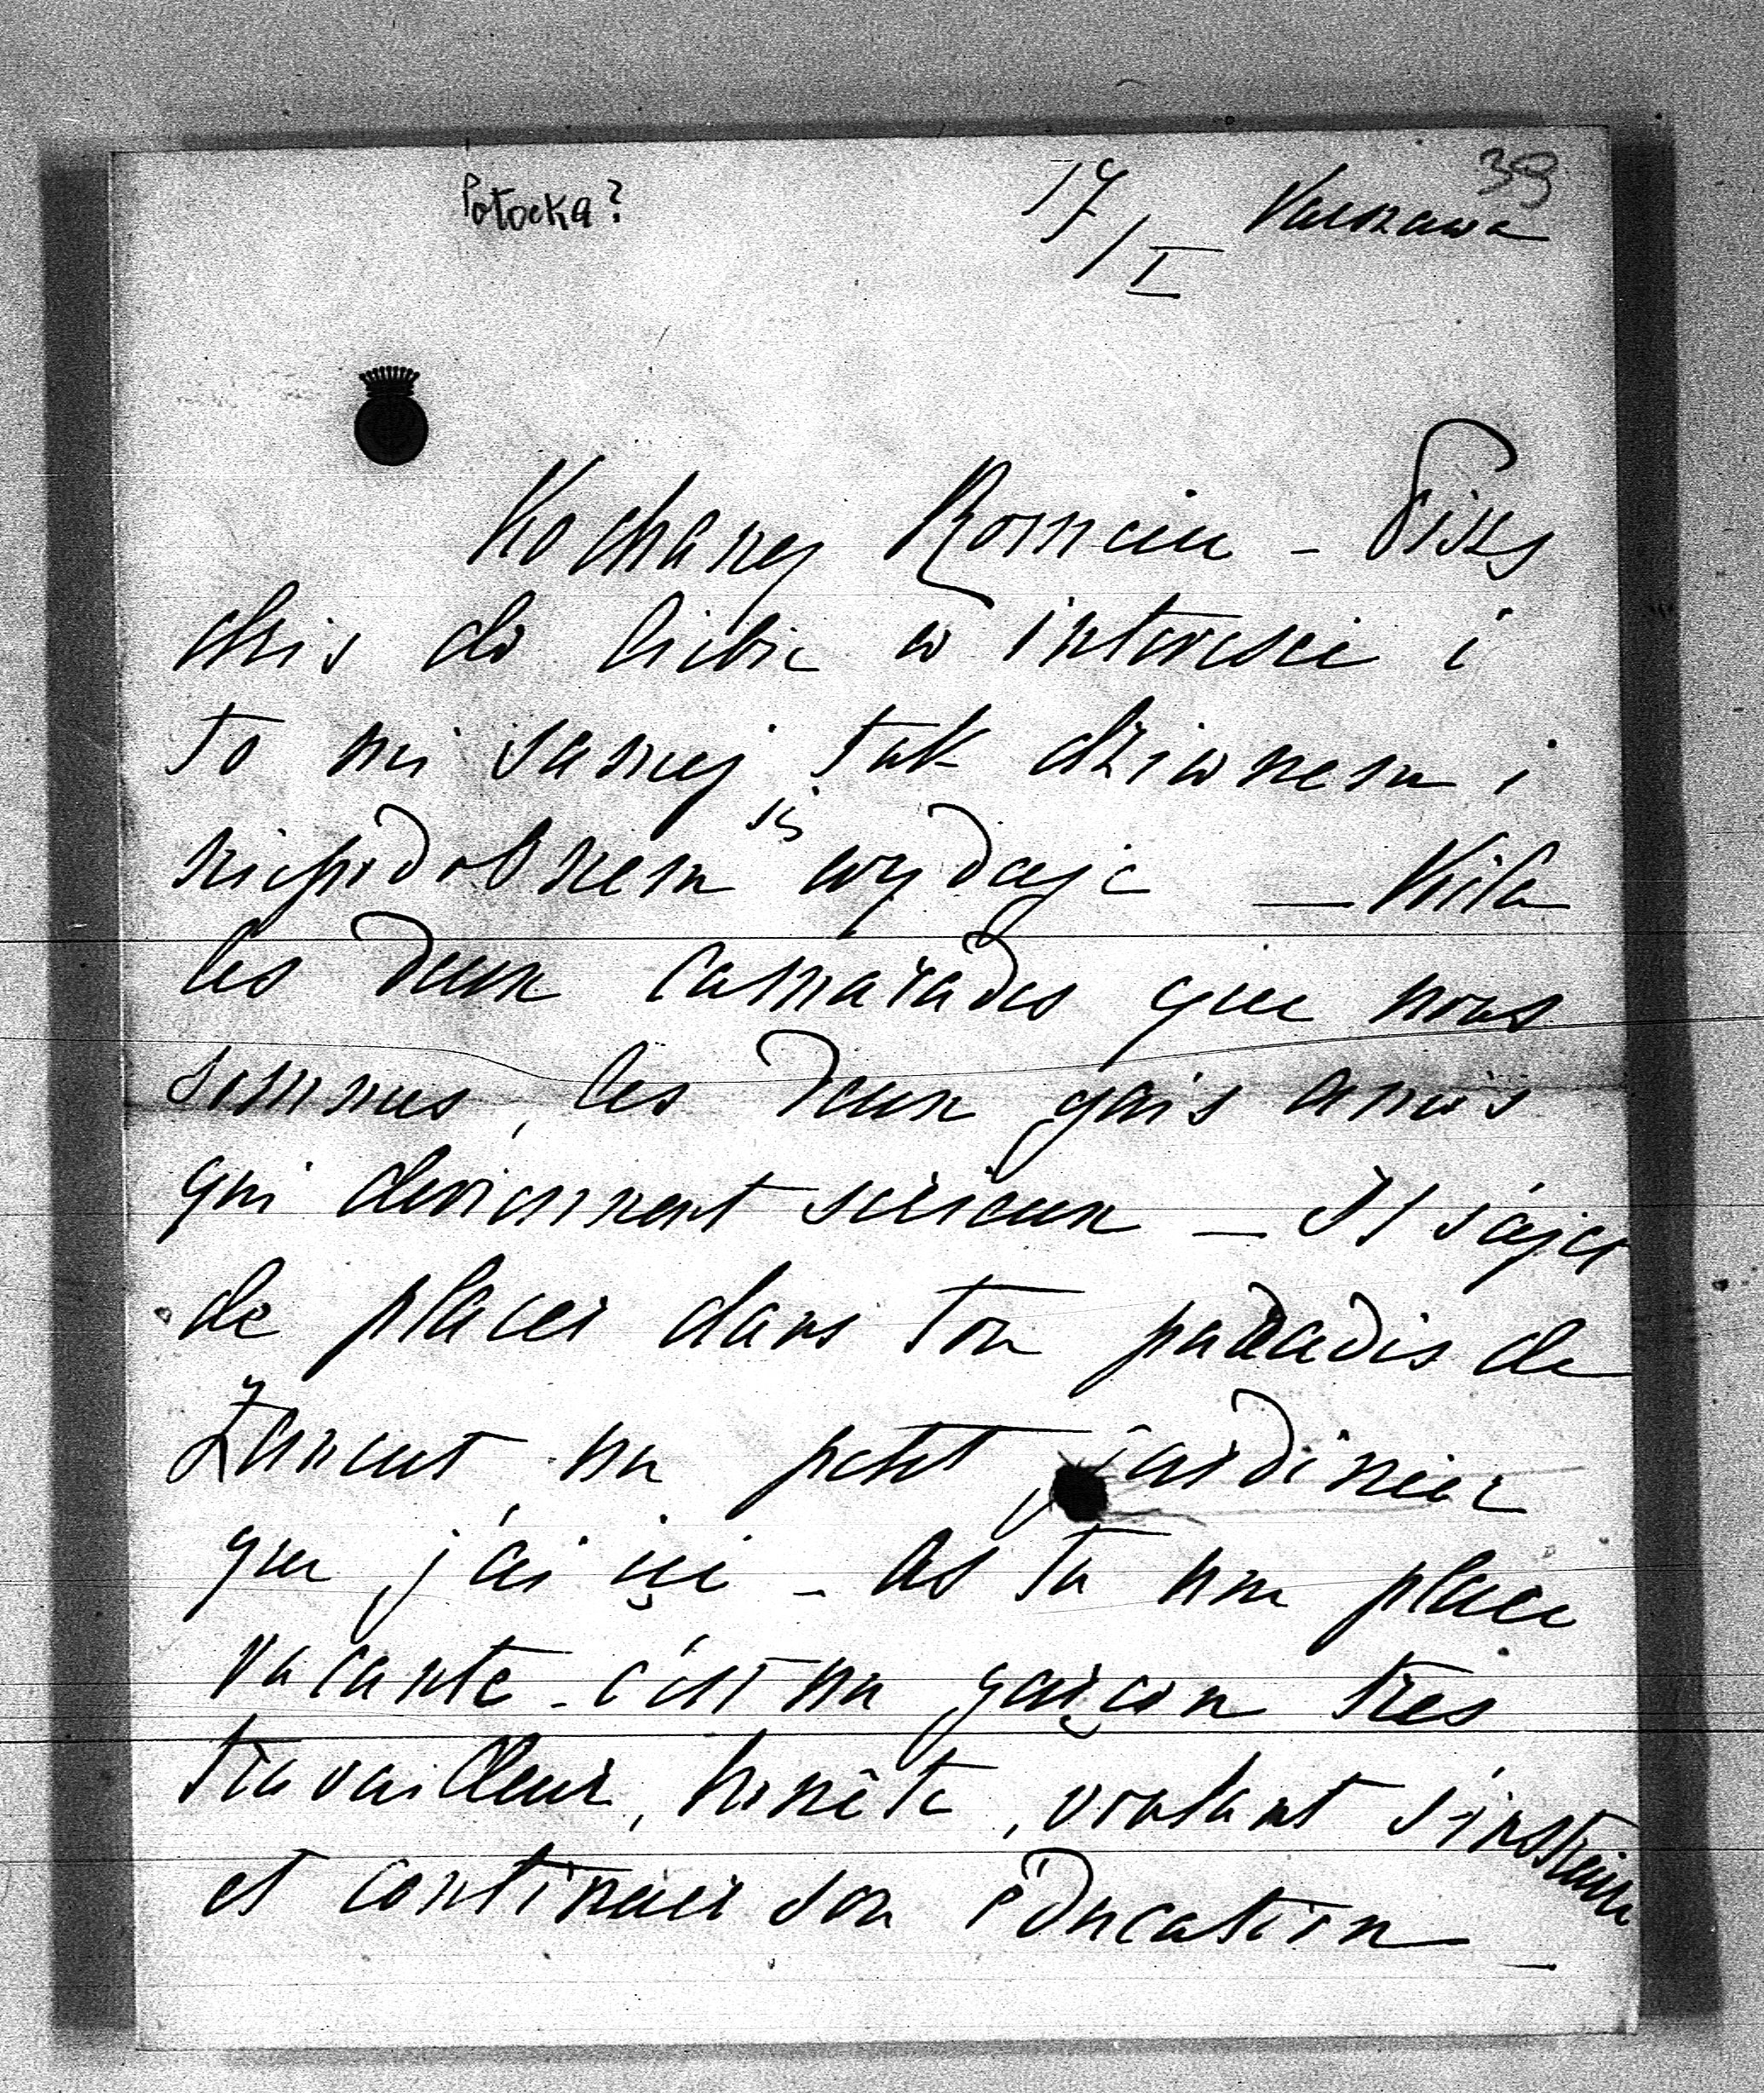 Potocka?
39
17/I Warszawa
Kochany Romciu - Piszę
dziś do Ciebie w interesie i
to mi samej tak dziwnem i
niepodobnem się wydaje — Vila
les deux camarades que nous
sommes, les deux gais amis
qui deviennent sérieux — Il s'ajet
de placer dans ton paradis de
Łancut un petit jardinier
que j'ai içi - As tu une place
vacante - c'est un garçon tres
travailleur, honête, voulant s'instruire
et continuer son éducation —